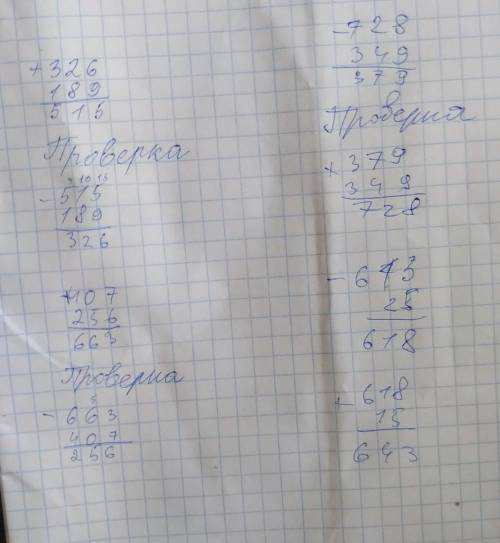 +326
189
515
Проверка
4 10 15
-515
189
326
+407
256
663
Проверка
5
-663
407
256
-728
349
379
Проверка
+379
349
728
-643
25
618
+618
15
643